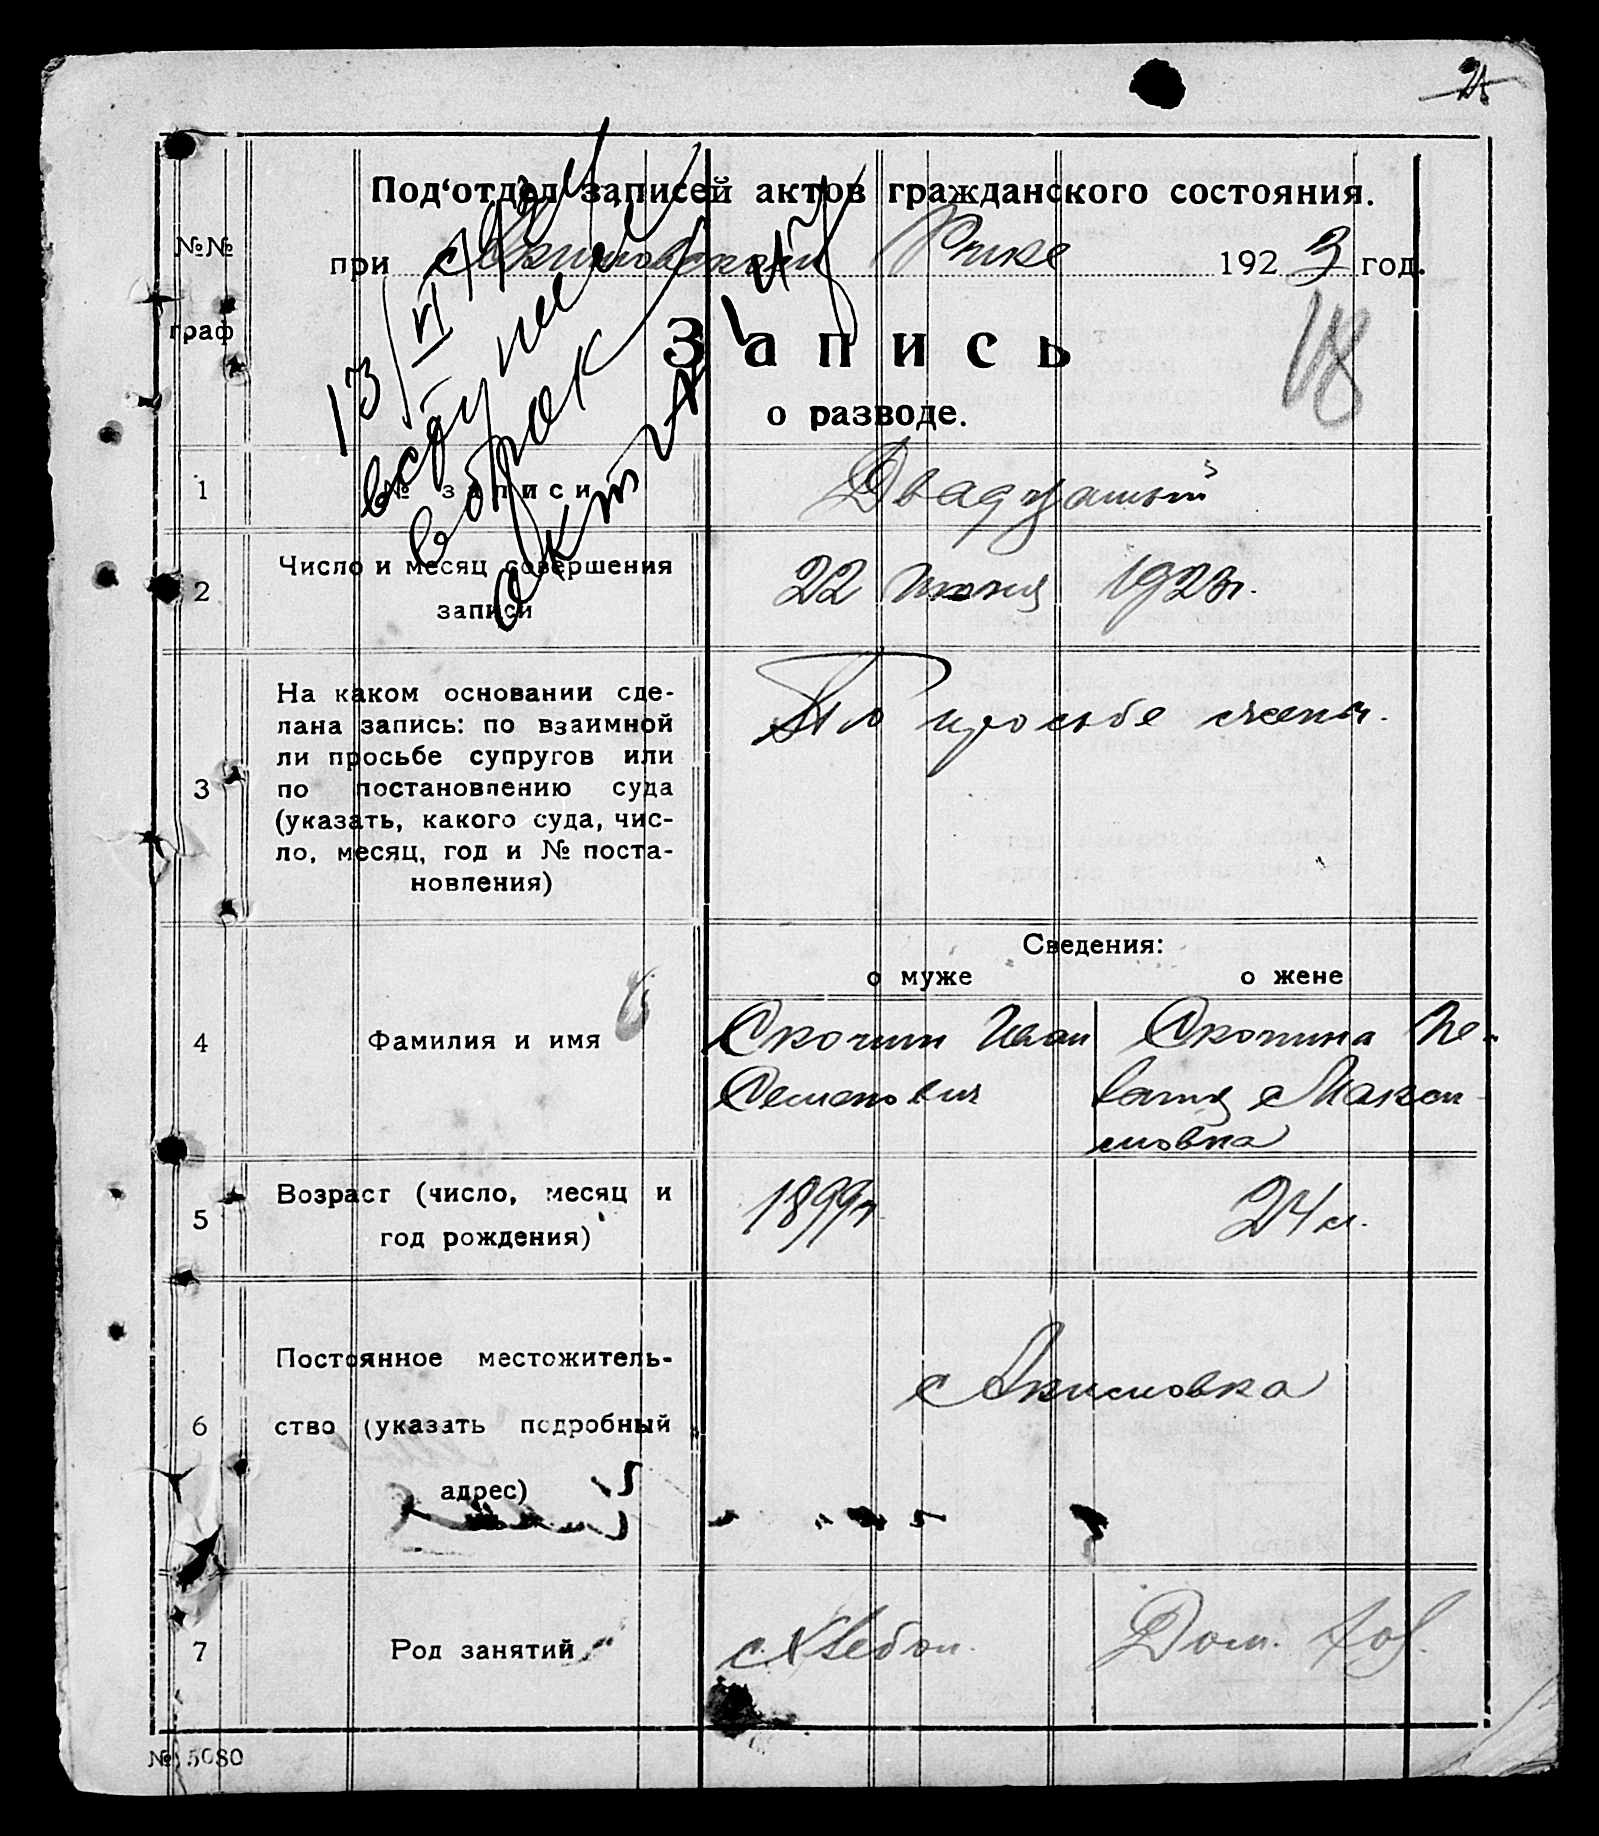 Под‘отдел записей актов гражданского состояния.
при с Акимовском Рике 1923 год.
№№
граф
13/VI 192
вступил
в брак
акт
Запись
18
о разводе.
1 № записи Двадцатый
2 Число и месяц совершения
записи
22 июня 1923г.
3 На каком основании сде-
лана запись: по взаимной
ли просьбе супругов или
по постановлению суда
(указать, какого суда, чис-
ло, месяц, год и № поста-
новления)
По просьбе жены.
Сведения:
о муже о жене
4 Фамилия и имя
Скопин Иван
Семенович
Скопина Пе-
лагия Макси-
мовна
5 Возраст (число, месяц и
год рождения)
1899г 24 л.
6 Постоянное местожитель-
ство (указать подробный
адрес)
с Акимовка
7 Род занятий
с. Хлебоп. Дом. хоз.
№ 5080